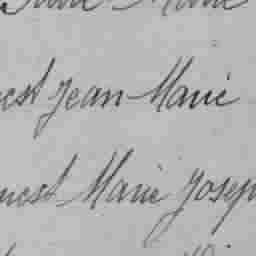 Marie
est Jean Marie
nest Marie Josep